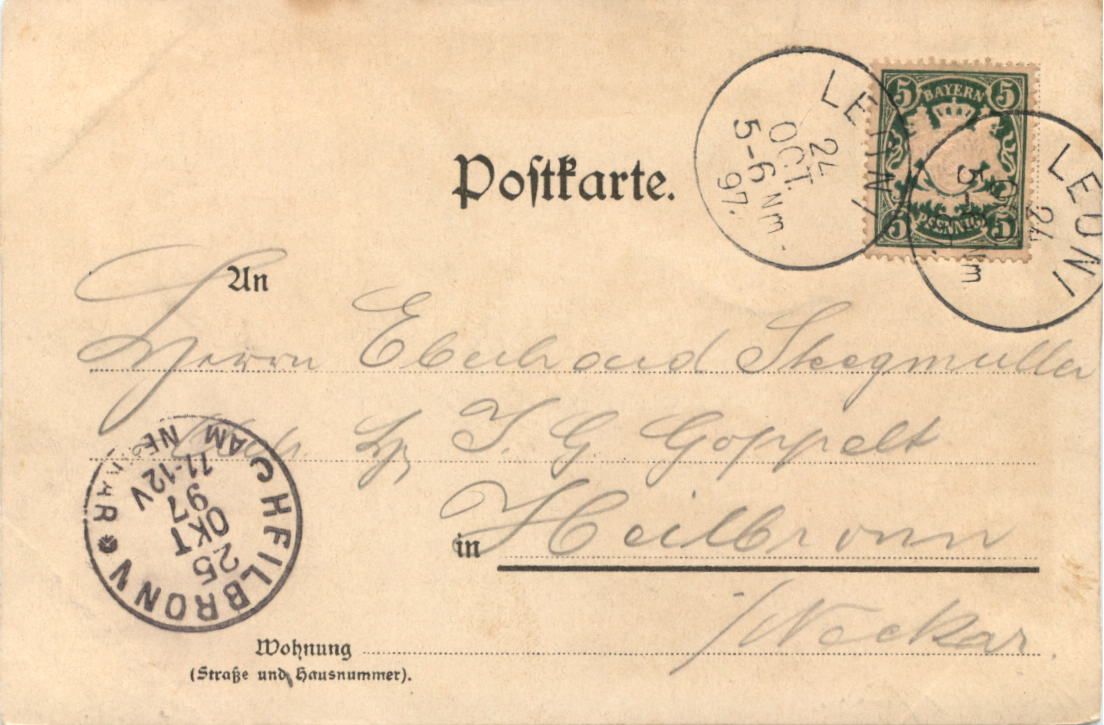 Postkarte.
5 BAYERN 5
5 PFENNIG 5
LEONI
24
OCT.
5-6 Nm.
97.
LEONI
24
5- Nm
An
Herrn Eberhard Stegmüller
J. G. Goppelt
in Heilbronn
/Neckar.
HEILBRONN
AM NECKAR
25
OKT
97
11-12V
C
Wohnung
(Straße und Hausnummer).